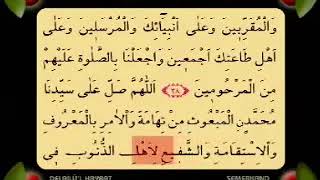 وَالْمُقَرَّبِينَ وَعَلَى اَنْبِيَائِكَ وَالْمُرْسَلِينَ وَعَلَى
اَهْلِ طَاعَتِكَ اَجْمَعِينَ وَاجْعَلْنَا بِالصَّلٰوةِ عَلَيْهِمْ
مِنَ الْمَرْحُومِينَ ﴿٢٨﴾ اَللّٰهُمَّ صَلِّ عَلَى سَيِّدِنَا
مُحَمَّدٍ الْمَبْعُوثِ مِنْ تِهَامَةَ وَالْاٰمِرِ بِالْمَعْرُوفِ
وَالْاِسْتِقَامَةِ وَالشَّفِيعِ لِاَهْلِ الذُّنُوبِ فِى
DELAILÜ'L HAYRAT
SEMERKAND